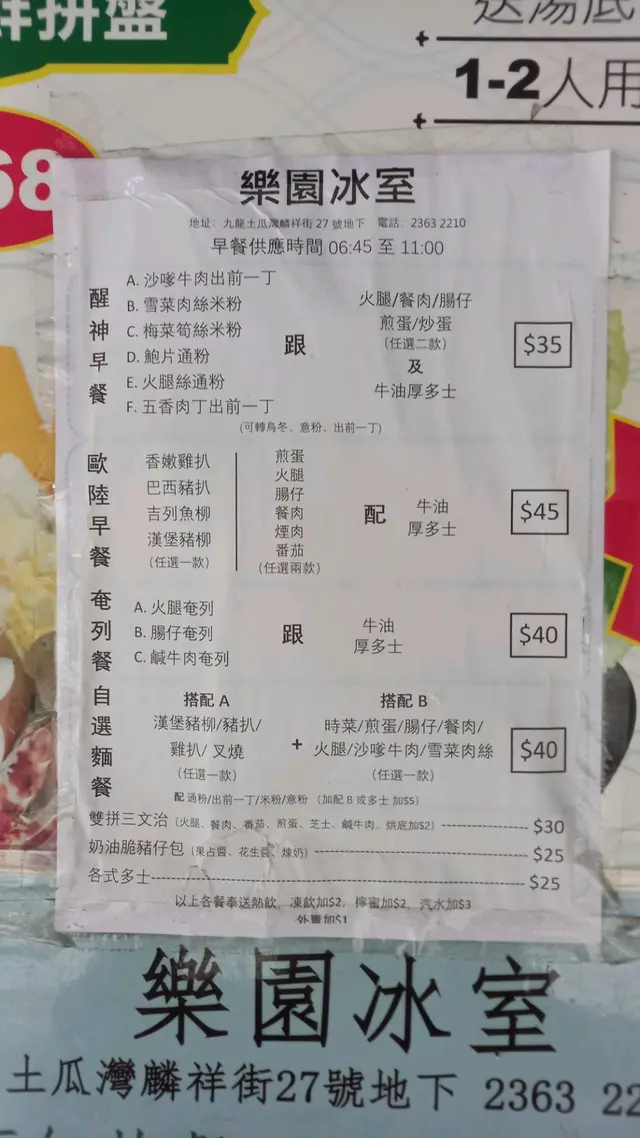 鮮拼盤
送湯底
1-2人用
68
樂園冰室
地址: 九龍土瓜灣麟祥街 27 號地下 電話: 2363 2210
早餐供應時間 06:45 至 11:00
醒神早餐
A. 沙嗲牛肉出前一丁
B. 雪菜肉絲米粉
C. 梅菜筍絲米粉
D. 鮑片通粉
E. 火腿絲通粉
F. 五香肉丁出前一丁
跟
火腿/餐肉/腸仔
煎蛋/炒蛋
(任選二款)
及
牛油厚多士
$35
(可轉烏冬、意粉、出前一丁)
歐陸早餐
香嫩雞扒
巴西豬扒
吉列魚柳
漢堡豬柳
(任選一款)
煎蛋
火腿
腸仔
餐肉
煙肉
番茄
(任選兩款)
配
牛油
厚多士
$45
奄列餐
A. 火腿奄列
B. 腸仔奄列
C. 鹹牛肉奄列
跟
牛油
厚多士
$40
自選麵餐
搭配 A
漢堡豬柳/豬扒/
雞扒/ 叉燒
(任選一款)
+
搭配 B
時菜/煎蛋/腸仔/餐肉/
火腿/沙嗲牛肉/雪菜肉絲
(任選一款)
$40
配 通粉/出前一丁/米粉/意粉 (加配 B 或多士 加$5)
雙拼三文治 (火腿、餐肉、番茄、煎蛋、芝士、鹹牛肉。烘底加$2) ---------------- $30
奶油脆豬仔包 (果占醬、花生醬、煉奶) ---------------------------------------- $25
各式多士---------------------------------------------------------------------- $25
以上各餐奉送熱飲, 凍飲加$2, 檸蜜加$2, 汽水加$3
外賣加$1
樂園冰室
土瓜灣麟祥街27號地下 2363 22